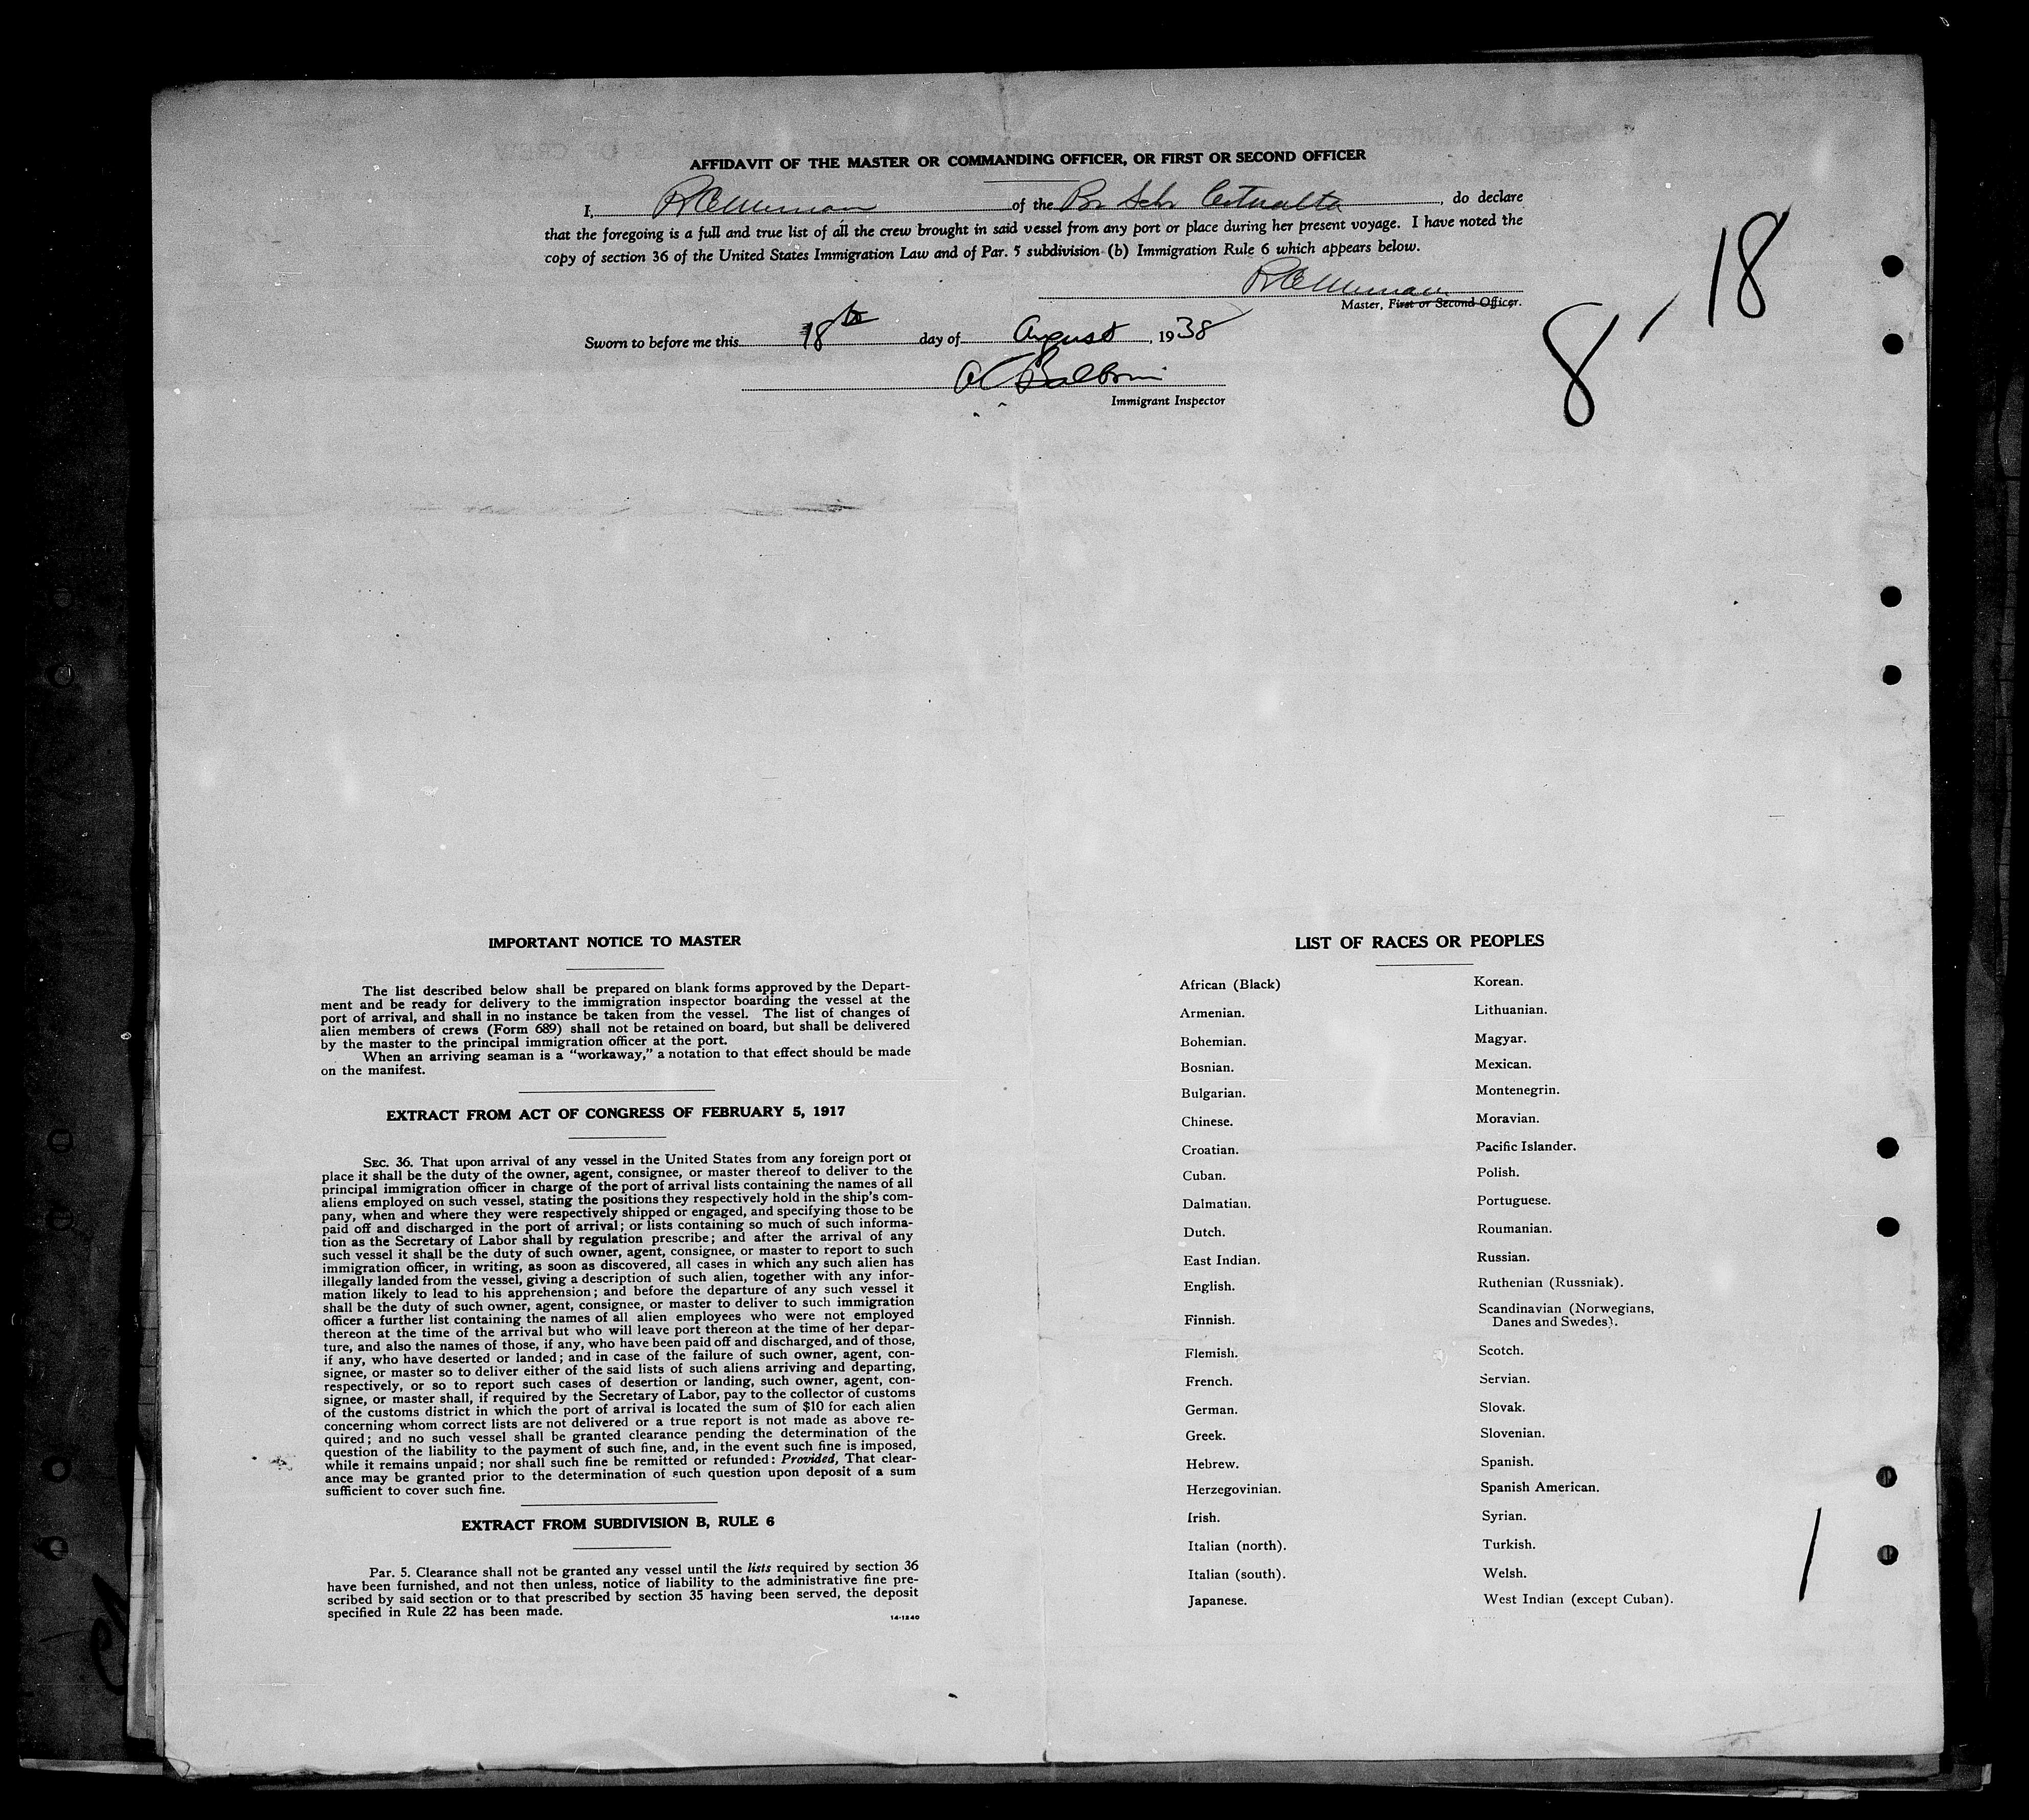 AFFIDAVIT OF THE MASTER OR COMMANDING OFFICER, OR FIRST OR SECOND OFFICER
I, of the Br Schr , do declare
that the foregoing is a full and true list of all the crew brought in said vessel from any port or place during her present voyage. I have noted the
copy of section 36 of the United States Immigration Law and of Par. 5 subdivision (b) Immigration Rule 6 which appears below.
Master, First or Second Officer.
Sworn to before me this 18th day of August, 1938
Immigrant Inspector
8 - 18
IMPORTANT NOTICE TO MASTER
The list described below shall be prepared on blank forms approved by the Depart-
ment and be ready for delivery to the immigration inspector boarding the vessel at the
port of arrival, and shall in no instance be taken from the vessel. The list of changes of
alien members of crews (Form 689) shall not be retained on board, but shall be delivered
by the master to the principal immigration officer at the port.
When an arriving seaman is a "workaway," a notation to that effect should be made
on the manifest.
EXTRACT FROM ACT OF CONGRESS OF FEBRUARY 5, 1917
SEC. 36. That upon arrival of any vessel in the United States from any foreign port or
place it shall be the duty of the owner, agent, consignee, or master thereof to deliver to the
principal immigration officer in charge of the port of arrival lists containing the names of all
aliens employed on such vessel, stating the positions they respectively hold in the ship's com-
pany, when and where they were respectively shipped or engaged, and specifying those to be
paid off and discharged in the port of arrival; or lists containing so much of such informa-
tion as the Secretary of Labor shall by regulation prescribe; and after the arrival of any
such vessel it shall be the duty of such owner, agent, consignee, or master to report to such
immigration officer, in writing, as soon as discovered, all cases in which any such alien has
illegally landed from the vessel, giving a description of such alien, together with any infor-
mation likely to lead to his apprehension; and before the departure of any such vessel it
shall be the duty of such owner, agent, consignee, or master to deliver to such immigration
officer a further list containing the names of all alien employees who were not employed
thereon at the time of the arrival but who will leave port thereon at the time of her depar-
ture, and also the names of those, if any, who have been paid off and discharged, and of those,
if any, who have deserted or landed; and in case of the failure of such owner, agent, con-
signee, or master so to deliver either of the said lists of such aliens arriving and departing,
respectively, or so to report such cases of desertion or landing, such owner, agent, con-
signee, or master shall, if required by the Secretary of Labor, pay to the collector of customs
of the customs district in which the port of arrival is located the sum of $10 for each alien
concerning whom correct lists are not delivered or a true report is not made as above re-
quired; and no such vessel shall be granted clearance pending the determination of the
question of the liability to the payment of such fine, and, in the event such fine is imposed,
while it remains unpaid; nor shall such fine be remitted or refunded: Provided, That clear-
ance may be granted prior to the determination of such question upon deposit of a sum
sufficient to cover such fine.
EXTRACT FROM SUBDIVISION B, RULE 6
Par. 5. Clearance shall not be granted any vessel until the lists required by section 36
have been furnished, and not then unless, notice of liability to the administrative fine pre-
scribed by said section or to that prescribed by section 35 having been served, the deposit
specified in Rule 22 has been made.
14-1240
LIST OF RACES OR PEOPLES
African (Black)
Armenian.
Bohemian.
Bosnian.
Bulgarian.
Chinese.
Croatian.
Cuban.
Dalmatian.
Dutch.
East Indian.
English.
Finnish.
Flemish.
French.
German.
Greek.
Hebrew.
Herzegovinian.
Irish.
Italian (north).
Italian (south).
Japanese.
Korean.
Lithuanian.
Magyar.
Mexican.
Montenegrin.
Moravian.
Pacific Islander.
Polish.
Portuguese.
Roumanian.
Russian.
Ruthenian (Russniak).
Scandinavian (Norwegians,
Danes and Swedes).
Scotch.
Servian.
Slovak.
Slovenian.
Spanish.
Spanish American.
Syrian.
Turkish.
Welsh.
West Indian (except Cuban).
1